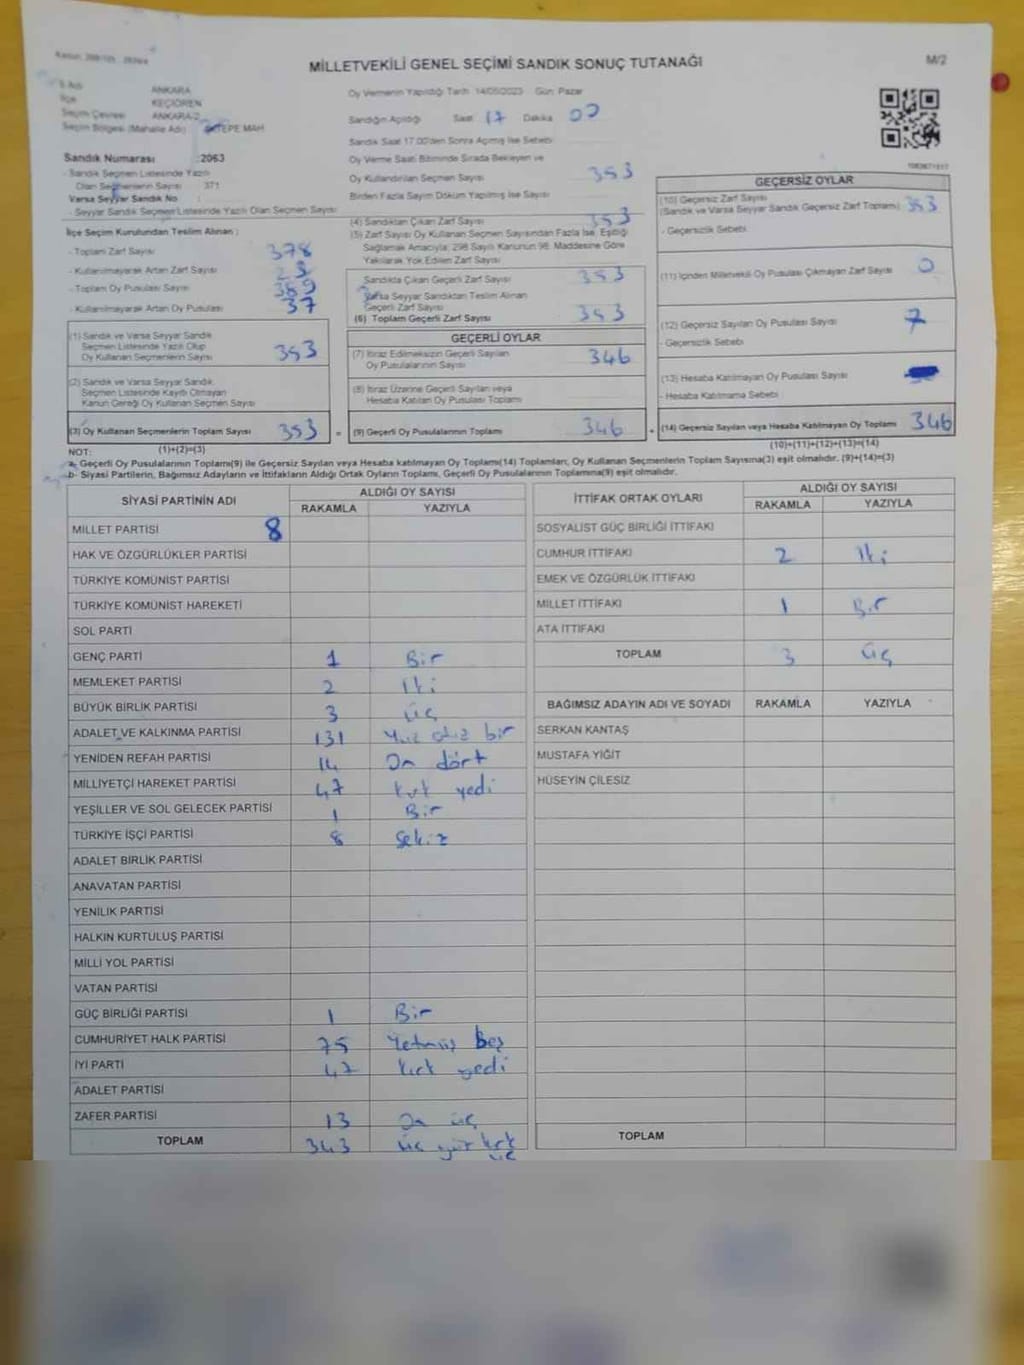 MİLLETVEKİLİ GENEL SEÇİMİ SANDIK SONUÇ TUTANAĞI
M/2
İli Adı ANKARA
İlçe KEÇİÖREN
Seçim Çevresi ANKARA-2
Seçim Bölgesi (Mahalle Adı)
Sandık Numarası :2063
- Sandık Seçmen Listesinde Yazılı
Olan Seçmenlerin Sayısı : 371
Varsa Seyyar Sandık No :
- Seyyar Sandık Seçmen Listesinde Yazılı Olan Seçmen Sayısı
İlçe Seçim Kurulundan Teslim Alınan :
- Toplam Zarf Sayısı 378
- Kullanılmayarak Artan Zarf Sayısı
- Toplam Oy Pusulası Sayısı
- Kullanılmayarak Artan Oy Pusulası 37
(1) Sandık ve Varsa Seyyar Sandık
Seçmen Listesinde Yazılı Olup
Oy Kullanan Seçmenlerin Sayısı 353
(2) Sandık ve Varsa Seyyar Sandık
Seçmen Listesinde Kayıtlı Olmayan
Kanun Gereği Oy Kullanan Seçmen Sayısı
(3) Oy Kullanan Seçmenlerin Toplam Sayısı 353 =
Oy Vermenin Yapıldığı Tarih 14/05/2023 Gün: Pazar
Sandığın Açıldığı Saat 17 Dakika 00
Sandık Saat 17:00'den Sonra Açılmış İse Sebebi
Oy Verme Saati Bitiminde Sırada Bekleyen ve
Oy Kullandırılan Seçmen Sayısı 353
Birden Fazla Sayım Döküm Yapılmış İse Sayısı
(4) Sandıktan Çıkan Zarf Sayısı 353
(5) Zarf Sayısı Oy Kullanan Seçmen Sayısından Fazla İse, Eşitliği
Sağlamak Amacıyla; 298 Sayılı Kanunun 98. Maddesine Göre
Yakılarak Yok Edilen Zarf Sayısı
Sandıkta Çıkan Geçerli Zarf Sayısı 353
Varsa Seyyar Sandıktan Teslim Alınan
Geçerli Zarf Sayısı
(6) Toplam Geçerli Zarf Sayısı 353
GEÇERLİ OYLAR
(7) İtiraz Edilmeksizin Geçerli Sayılan
Oy Pusulalarının Sayısı 346
(8) İtiraz Üzerine Geçerli Sayılan veya
Hesaba Katılan Oy Pusulaları Toplamı
(9) Geçerli Oy Pusulalarının Toplamı 346 +
GEÇERSİZ OYLAR
(10) Geçersiz Zarf Sayısı
(Sandık ve Varsa Seyyar Sandık Geçersiz Zarf Toplamı) 353
- Geçersizlik Sebebi
(11) İçinden Milletvekili Oy Pusulası Çıkmayan Zarf Sayısı 0
(12) Geçersiz Sayılan Oy Pusulası Sayısı 7
- Geçersizlik Sebebi
(13) Hesaba Katılmayan Oy Pusulası Sayısı
- Hesaba Katılmama Sebebi
(14) Geçersiz Sayılan veya Hesaba Katılmayan Oy Toplamı 346
NOT: (1)+(2)=(3) (10)+(11)+(12)+(13)=(14)
a- Geçerli Oy Pusulalarının Toplamı(9) ile Geçersiz Sayılan veya Hesaba katılmayan Oy Toplamı(14) Toplamları, Oy Kullanan Seçmenlerin Toplam Sayısına(3) eşit olmalıdır. (9)+(14)=(3)
b- Siyasi Partilerin, Bağımsız Adayların ve İttifakların Aldığı Ortak Oyların Toplamı, Geçerli Oy Pusulalarının Toplamına(9) eşit olmalıdır.
SİYASİ PARTİNİN ADI ALDIĞI OY SAYISI
RAKAMLA YAZIYLA
MİLLET PARTİSİ 8
HAK VE ÖZGÜRLÜKLER PARTİSİ
TÜRKİYE KOMÜNİST PARTİSİ
TÜRKİYE KOMÜNİST HAREKETİ
SOL PARTİ
GENÇ PARTİ 1 Bir
MEMLEKET PARTİSİ 2 İki
BÜYÜK BİRLİK PARTİSİ 3 üç
ADALET VE KALKINMA PARTİSİ 131 Yüz otuz bir
YENİDEN REFAH PARTİSİ 14 On dört
MİLLİYETÇİ HAREKET PARTİSİ 47 kırk yedi
YEŞİLLER VE SOL GELECEK PARTİSİ 1 Bir
TÜRKİYE İŞÇİ PARTİSİ 8 Sekiz
ADALET BİRLİK PARTİSİ
ANAVATAN PARTİSİ
YENİLİK PARTİSİ
HALKIN KURTULUŞ PARTİSİ
MİLLİ YOL PARTİSİ
VATAN PARTİSİ
GÜÇ BİRLİĞİ PARTİSİ 1 Bir
CUMHURİYET HALK PARTİSİ 75 Yetmiş Beş
İYİ PARTİ 47 kırk yedi
ADALET PARTİSİ
ZAFER PARTİSİ 13 On üç
TOPLAM 343 üç yüz kırk
üç
İTTİFAK ORTAK OYLARI ALDIĞI OY SAYISI
RAKAMLA YAZIYLA
SOSYALİST GÜÇ BİRLİĞİ İTTİFAKI
CUMHUR İTTİFAKI 2 İki
EMEK VE ÖZGÜRLÜK İTTİFAKI
MİLLET İTTİFAKI 1 Bir
ATA İTTİFAKI
TOPLAM 3 üç
BAĞIMSIZ ADAYIN ADI VE SOYADI RAKAMLA YAZIYLA
SERKAN KANTAŞ
MUSTAFA YİĞİT
HÜSEYİN ÇİLESİZ
TOPLAM